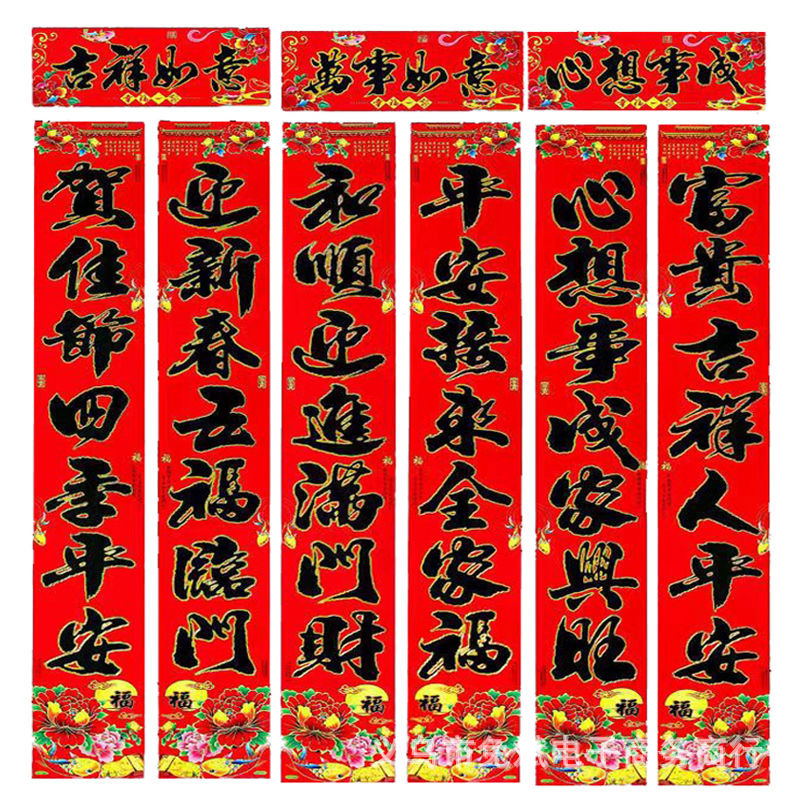 吉祥如意
萬事如意
心想事成
賀佳節四季平安
迎新春五福臨門
和順迎進滿門財
平安接來全家福
心想事成家興旺
富貴吉祥人平安
福
福
福
福
福
福